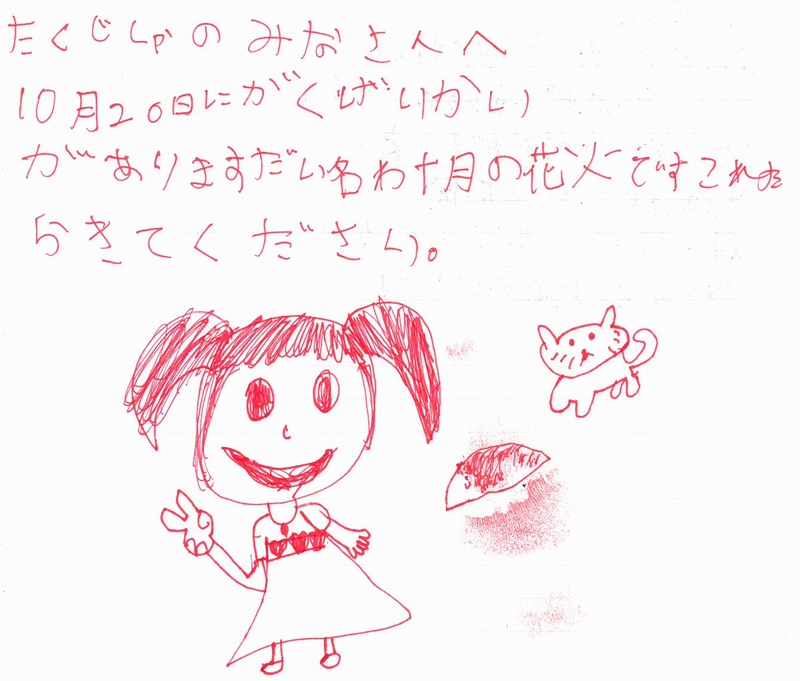 たくじしゃのみなさんへ
10月20日にがくげいかい
がありますだい名わ十月の花火ですこれた
らきてください。